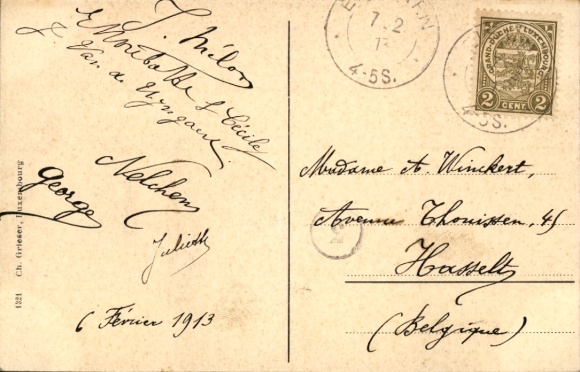 J. Mélon
S. Cécile
Van de
George
Nelchen
Juliette
6 Février 1913
1321 Ch. Grieser, Luxembourg
7.2
13
4-5S.
GRAND-DUCHÉ DE LUXEMBOURG
2 CENT. 2
4-5S.
Madame A. Winckert,
Avenue Thonissen, 45
Hasselt
(Belgique)